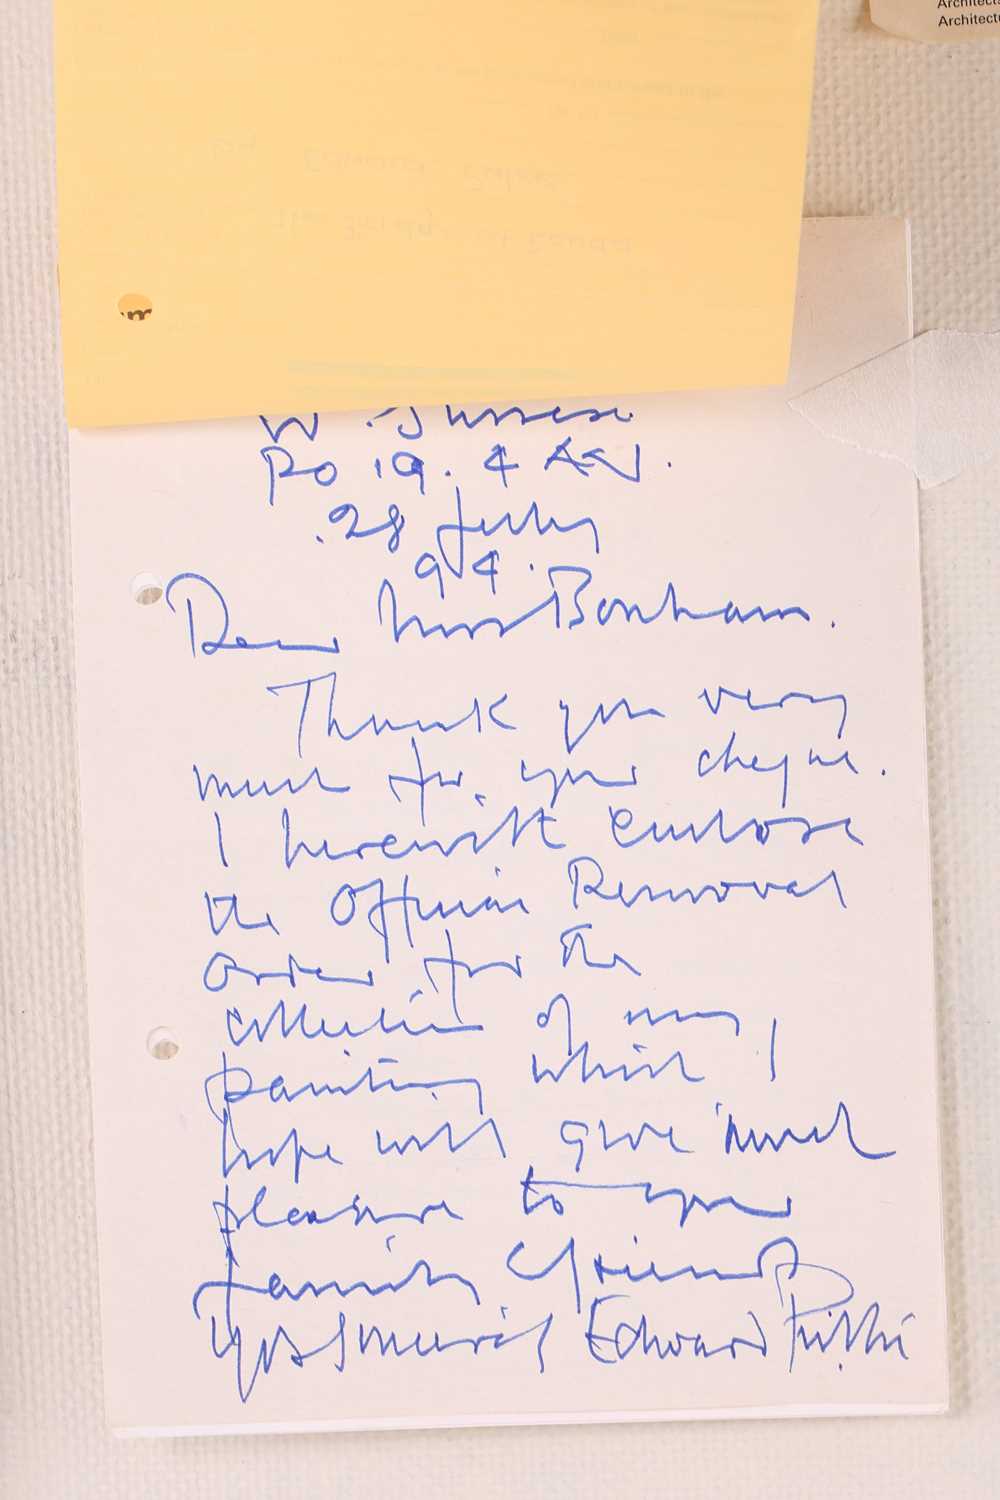 Architects
Architectu
W. Sussex
PO 19. 4
28 July
94.
Dear Miss Bonham.
Thank you very
much for your cheque.
I herewith enclose
the Official Removal
Order for the
collection of my
painting which I
hope will give much
pleasure to your
family & friends
Yrs Sincerely Edward